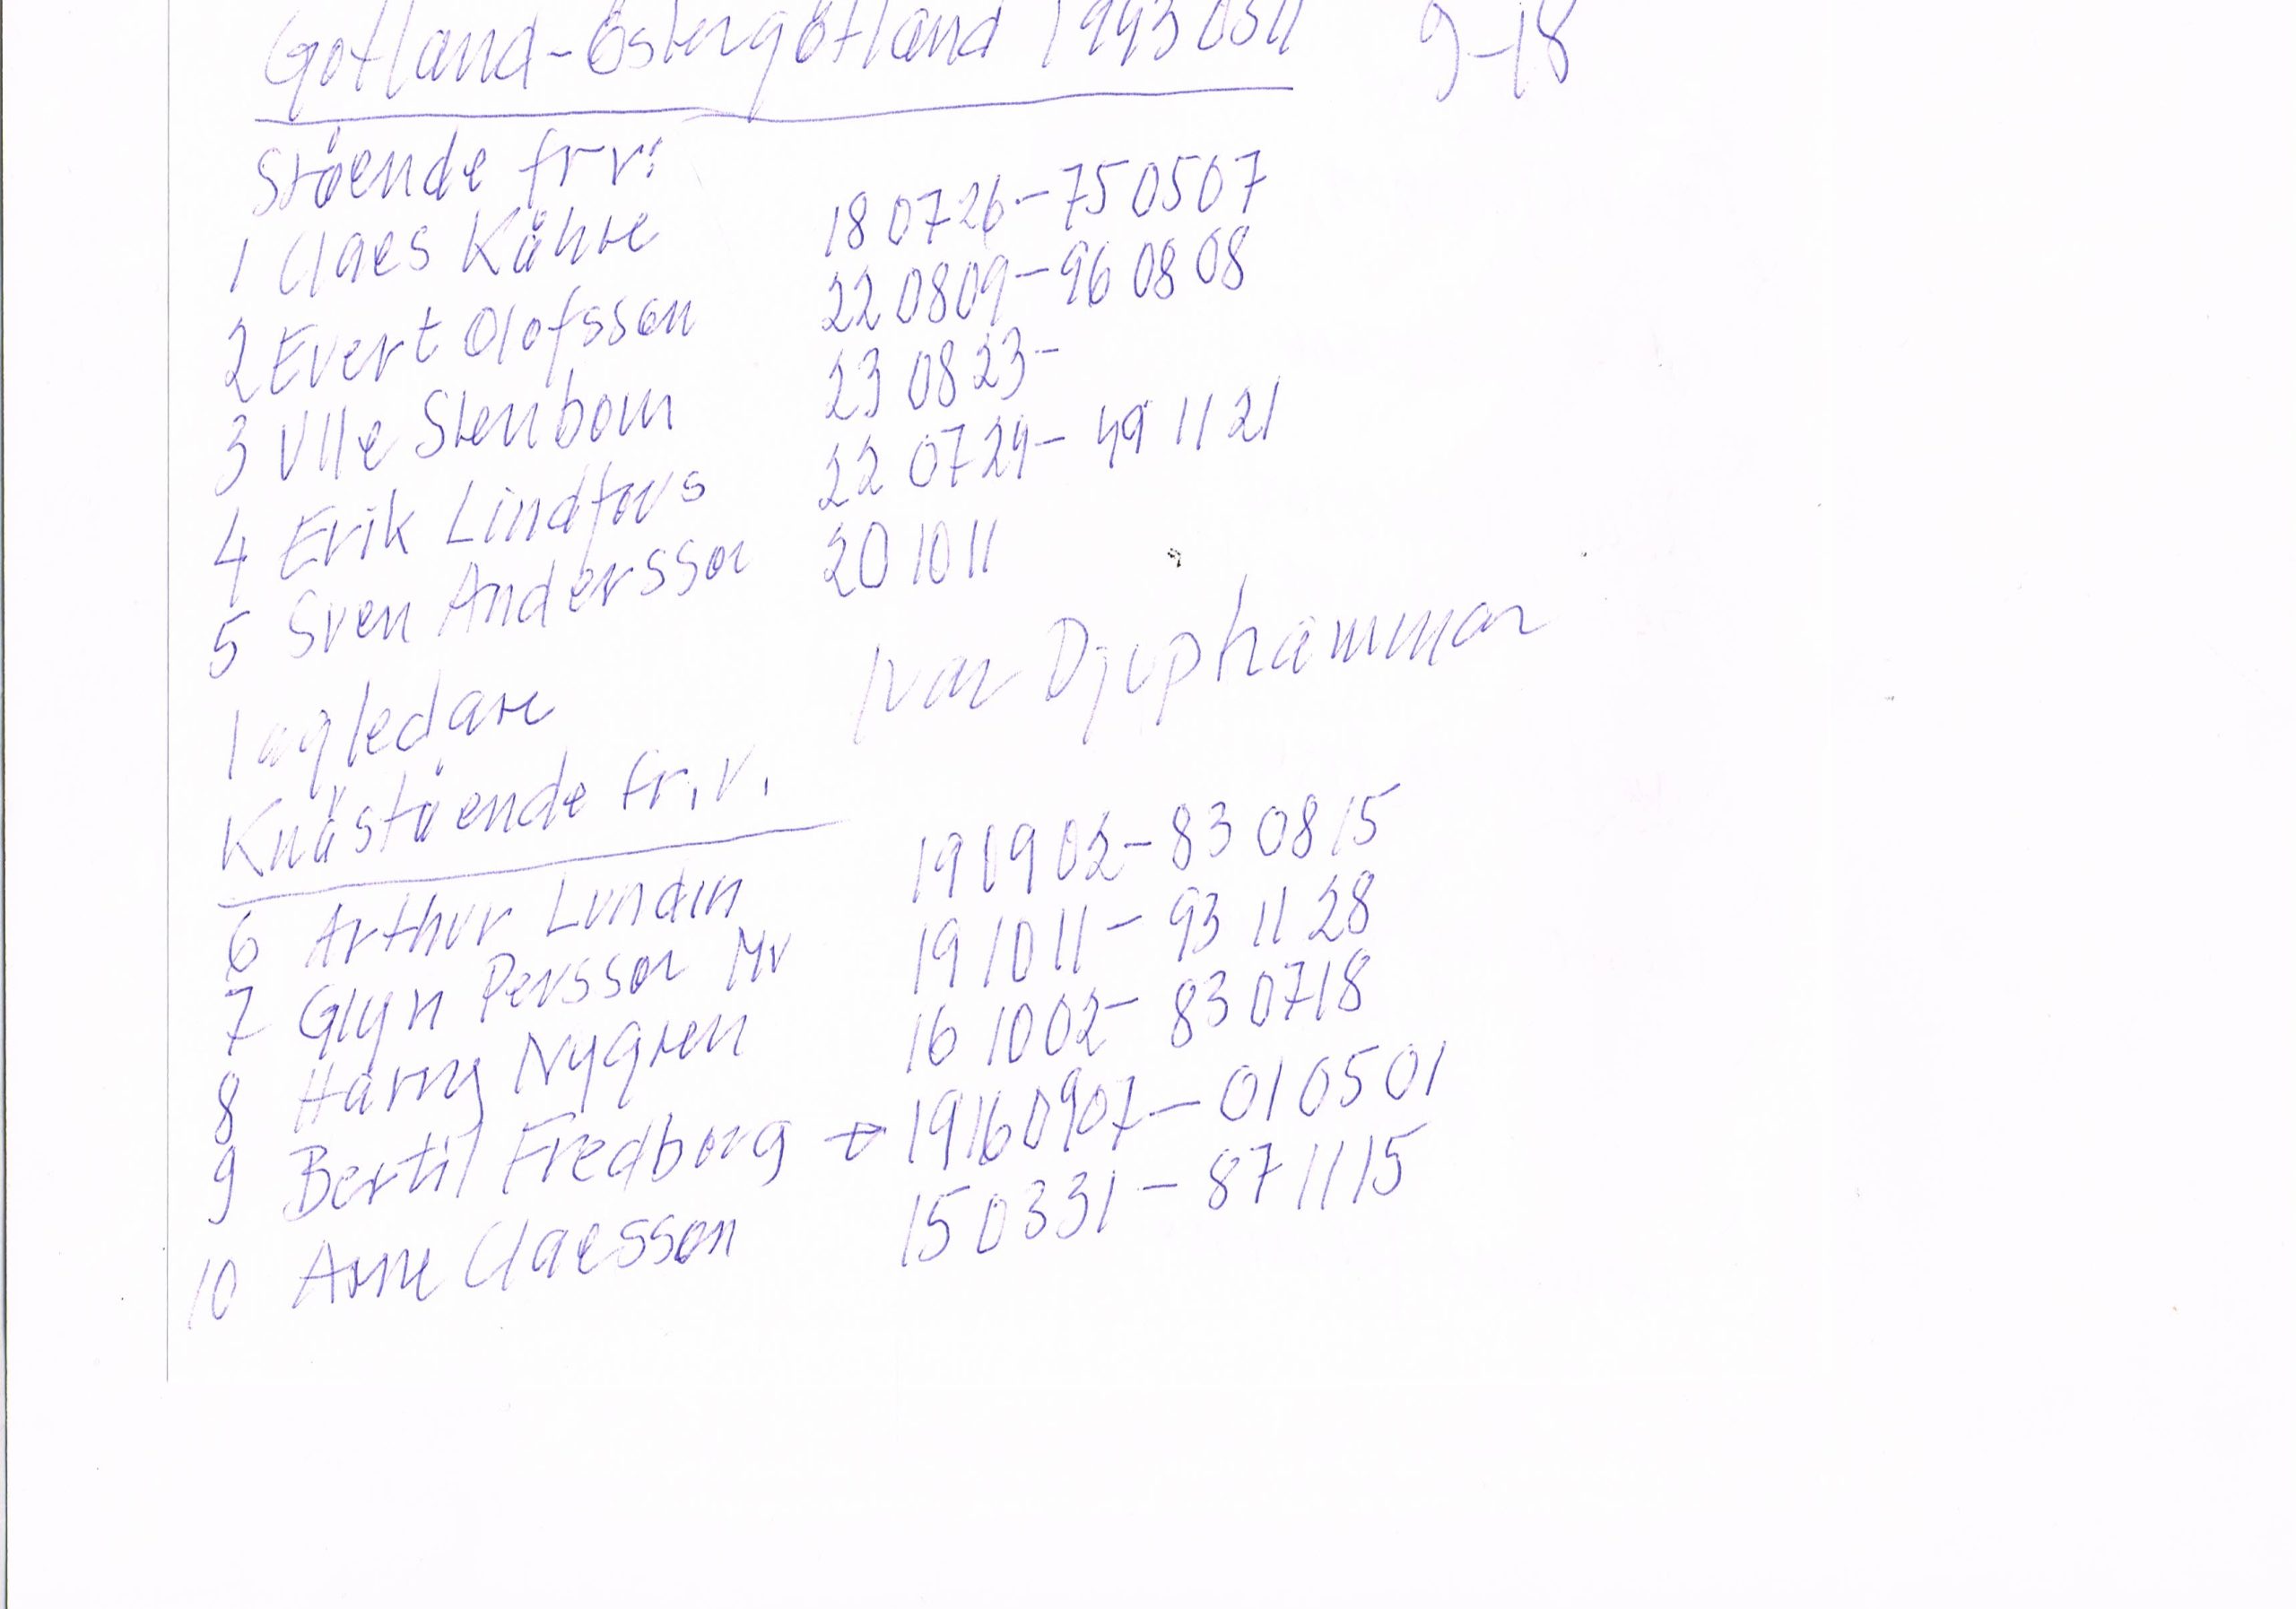 Gotland-Östergötland 19430311 9-18
Stående fr v:
1 Claes Kähre 180726-750507
2 Evert Olofsson 220809-960808
3 Ulle Stenbom 230823-
4 Erik Lindfors 220729-491121
5 Sven Andersson 201011
lagledare Ivar Djuphammar
Knästående fr.v.
6 Arthur Lundin 190902-830815
7 Glyn Persson Mv 191011-931128
8 Harry Nygren 161002-830718
9 Bertil Fredborg → 19160907-010501
10 Arne Claesson 150331-871115